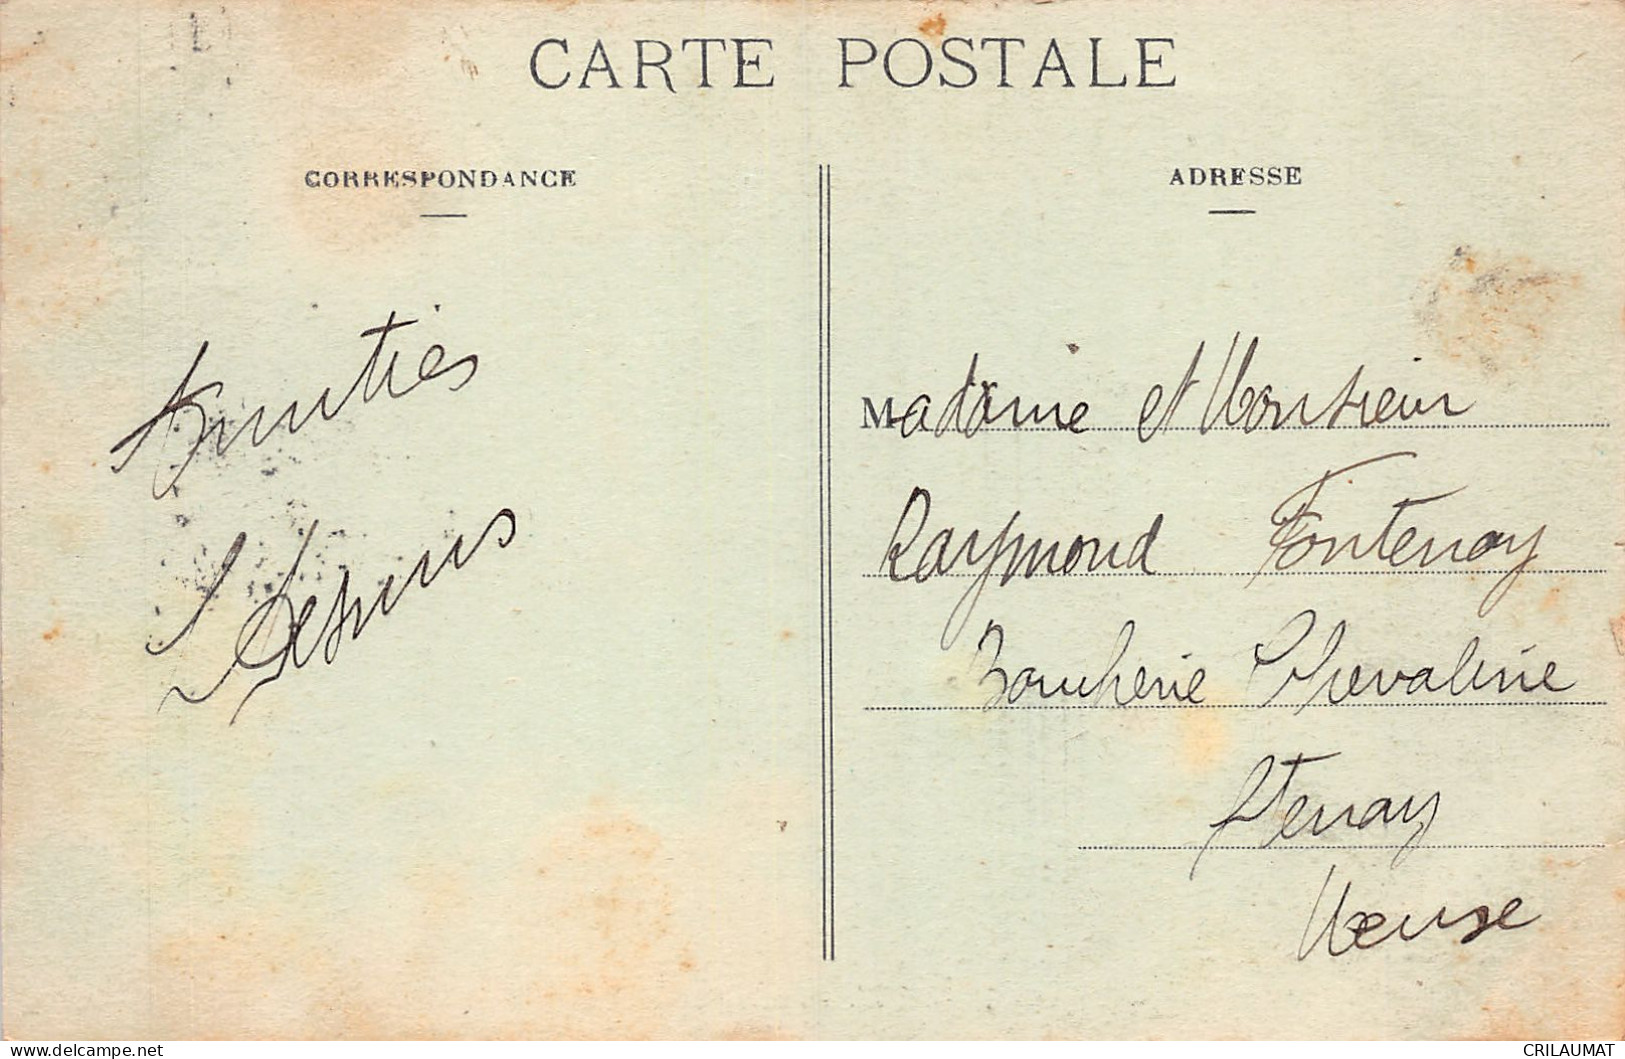 CARTE POSTALE
CORRESPONDANCE
ADRESSE
Amitiés
Madame et Monsieur
Raymond Fontenoy
Boucherie Chevaline
Stenay
Meuse
delcampe.net
CRILAUMAT